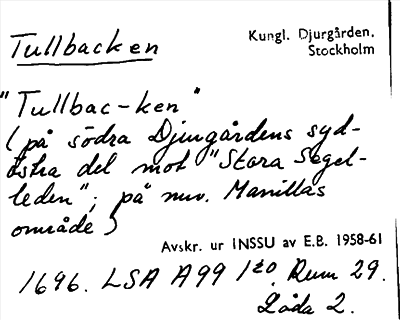 Tullbacken
Kungl. Djurgården.
Stockholm
"Tullbac-ken"
(på södra Djurgårdens syd-
östra del mot "Stora Segel-
leden"; på nuv. Manillas
område)
Avskr. ur INSSU av E.B. 1958-61
1696. LSA A99 1to. Rum 29.
Låda 2.